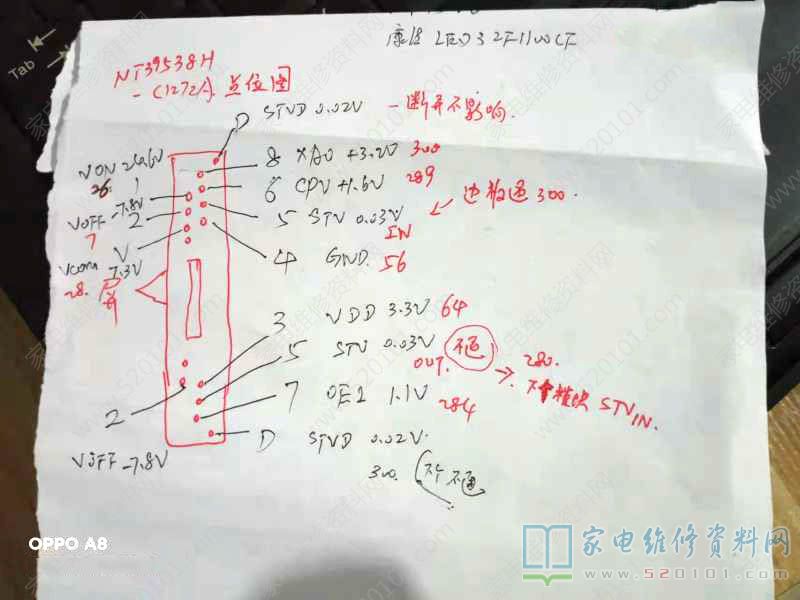 康佳 LED32F1100CF
NT39538H
-C1272A 点位图
D STVD 0.02V -断开不影响.
VON 26.6V
26. 1
8 XAO +3.2V 300
6 CPV +1.6V 289
VOFF -7.8V
7 2
5 STV 0.03V
IN
边板通 300.
V
4 GND. 56
VCOM 7.3V
28. 屏
3 VDD 3.3V 64
5 STV 0.03V 不通
OUT.
280.
STV IN.
7 OE2 1.1V
284
2
VOFF -7.8V
D STVD 0.02V.
300. 不通
Tab
OPPO A8
家电维修资料网
www.520101.com